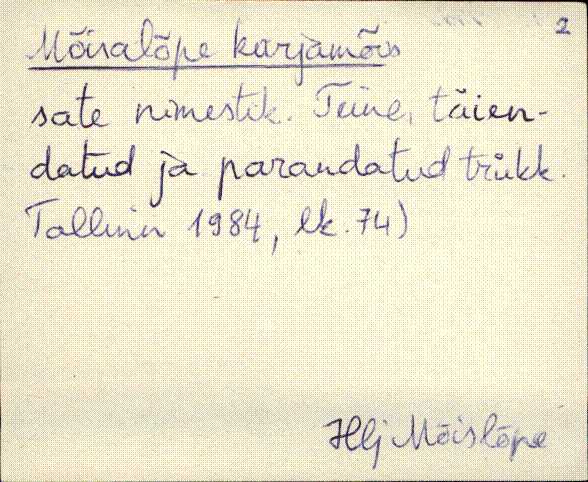 2
Mõisalõpe karjamõis
sate nimestik. Teine, täien-
datud ja parandatud trükk.
Tallinn 1984, lk. 74)
Hlj Mõislõpe